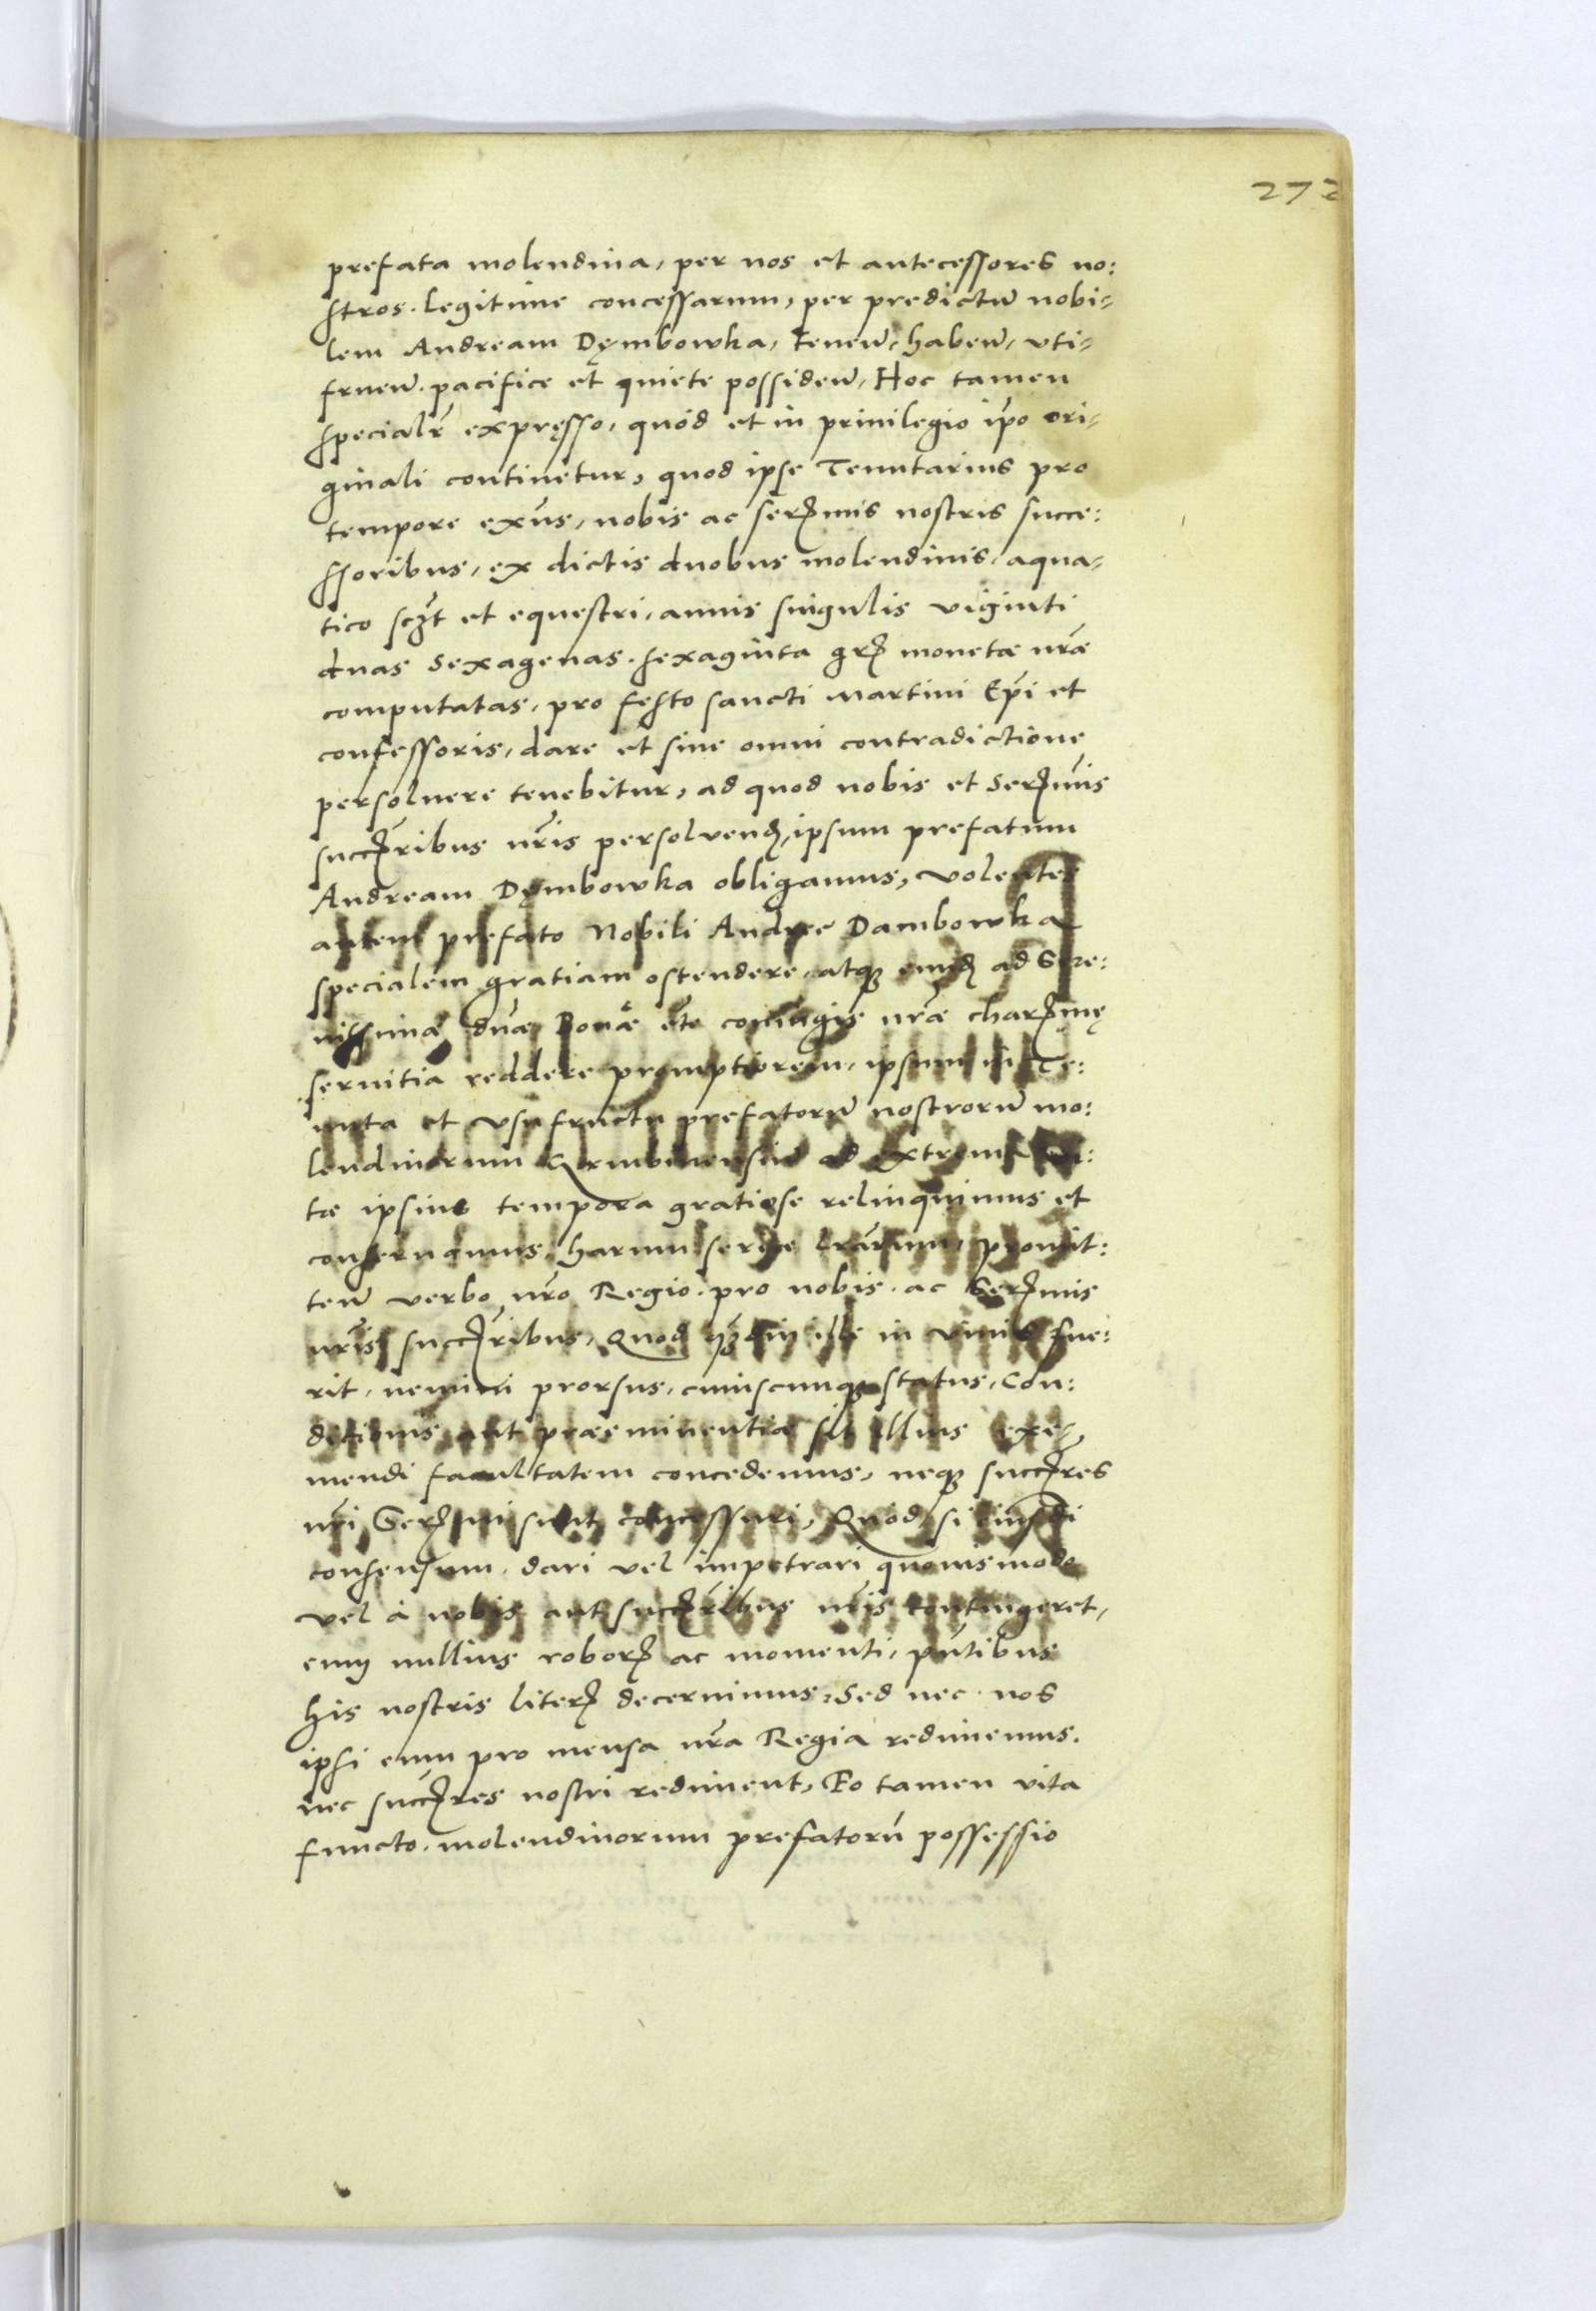 272
prefata molendina, per nos et antecessores no:
stros. legitime concessarum, per predictū nobi-
lem Andream Dęmbowka, tenen̄, haben̄, vti-
fruen̄. pacifice et quiete possiden̄, Hoc tamen
specialr̄ expręsso, quód et in priuilegio ip̄o ori-
ginali continetur, quod ipse Tenutarius pro
tempore exn̄s, nobis ac serꝫmis nostris succe:
ssoribus, ex dictis duobus molendinis, aqua-
tico sczt et equestri, annis singulis viginti
duas Sexagenas. sexaginta grꝫ monetæ nr̄æ
computatas, pro festo sancti Martini Ep̄i et
confessoris, dare et sine omni contradictione
persoluere tenebitur, ad quod nobis et Serꝫmis
succꝫribus nr̄is persoluendꝫ, ipsum prefatum
Andream Dęmbowka obligamus, volentes
autem prefato Nobili Andree Dambowka
specialem gratiam ostendere, atqꝫ eundꝫ ad Sere:
nissimæ dn̄æ Bonæ etc̄ coniugis nr̄æ charꝫmę
seruitia reddere promptiorem, ipsum in Te:
nuta et vsufructu prefatorū nostrorū mo:
lendinorum ad extrema
tæ ipsius tempora gratiose relinquimus et
conseruamus, harum serie lrārum, promit:
ten̄ verbo nr̄o Regio. pro nobis. ac Serꝫmis
nr̄is succꝫribus, Quod ille in viuis fue:
rit, nemini prorsus, cuiuscunqꝫ status, con:
ditionis, aut præeminentiæ sit illius exi-
mendi facultatem concedemus, neqꝫ succꝫres
nr̄i Serꝫmi sunt concessuri, Quód si
consensum, dari vel impetrari quouismodo
vel á nobis aut succꝫribus nr̄is contingeret,
eum nullius roborꝫ ac momenti, pn̄tibus
his nostris literꝫ decernimus, Sed nec nos
ipsi eum pro mensa nr̄a Regia redimemus.
nec succꝫres nostri rediment, Eo tamen vita
functo. molendinorum prefatorū possessio